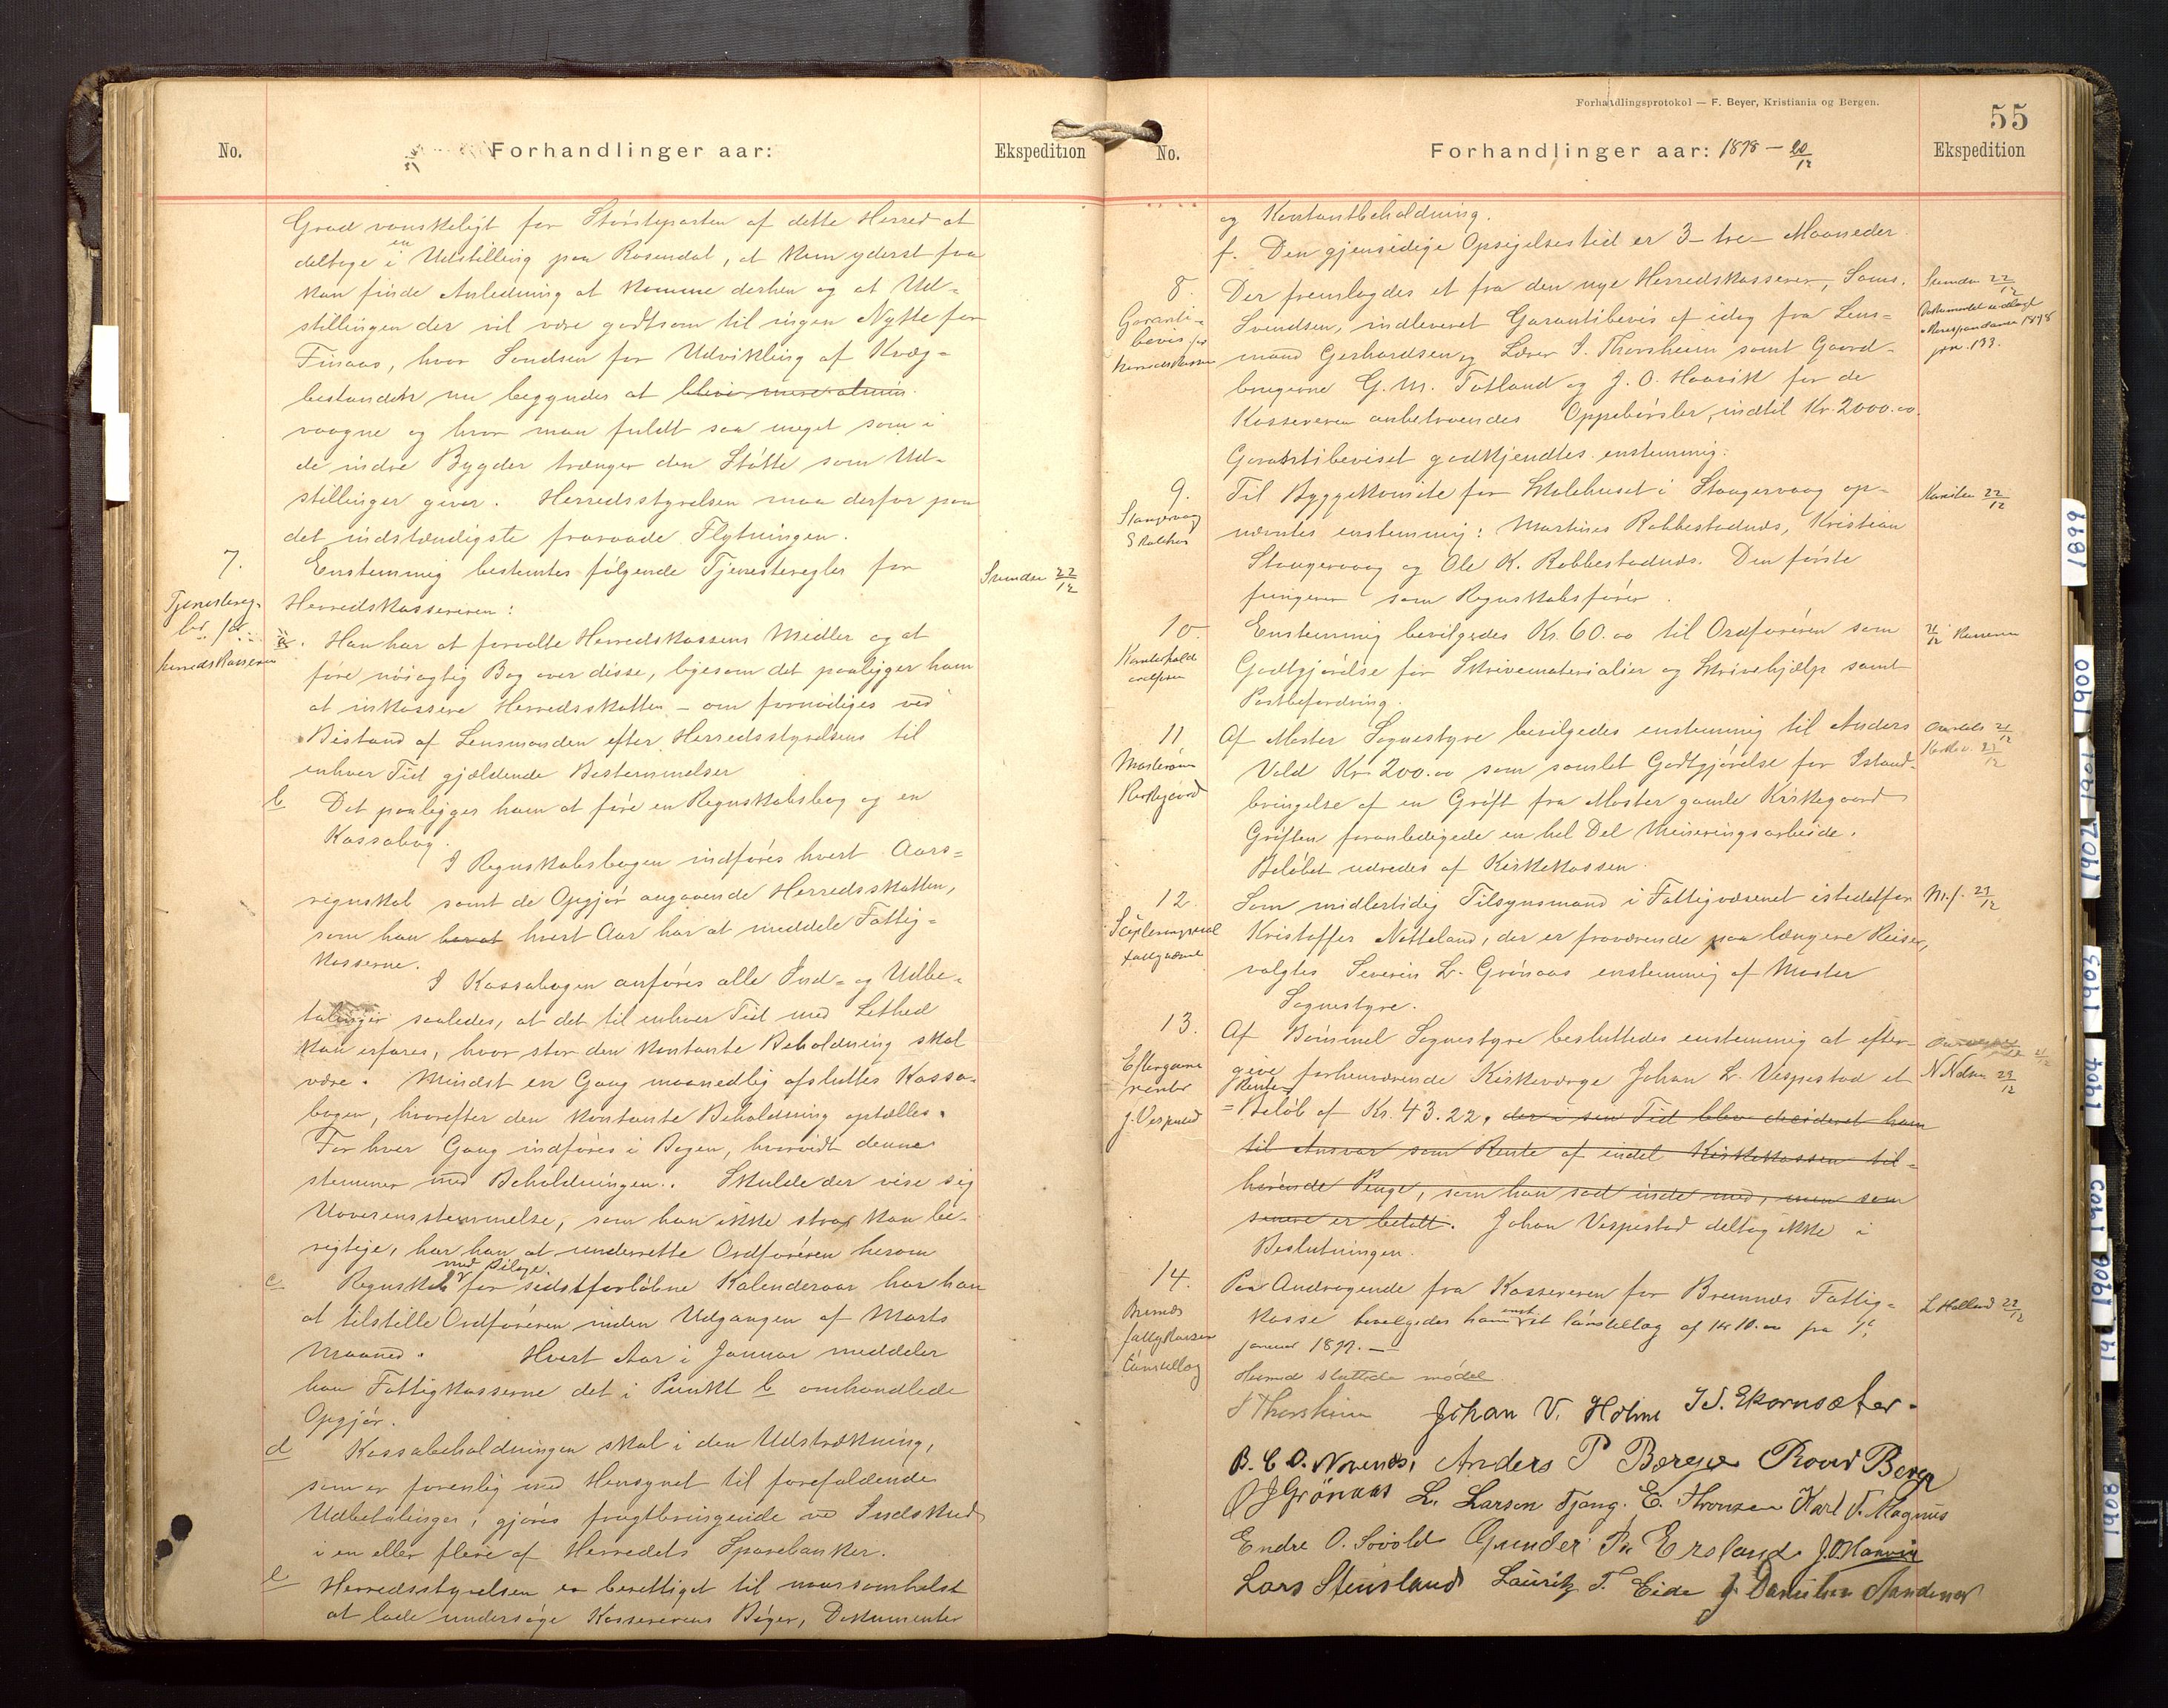 No.
Forhandlinger aar:
Ekspedition
Grad vanskeligt for Störsteparten af dette Herred at
deltage i en Udstilling paa Rosendal, at kun yderst faa
kan finde Anledning at komme derhen og at Ud-
stillingen der vil være godtsom til ingen Nytte for
Finaas, hvor Sandsen for Udvikling af Kvæg-
bestanden nu begynder at blive mere almin.
vaagne og hvor man fuldt saa meget som i
de indre Bygder trænger den Stötte som Ud-
stillinger giver. Herredsstyrelsen maa derfor paa
det indstændigste fraraade Flytningen.
7.
Tjenestereg-
ler for
herredskasseren
Enstemmig bestemtes følgende Tjenesteregler for
Svendsen 22/12
Herredskassereren:
a. Han har at forvalte Herredskassens Midler og at
före nöiagtig Bog over disse, ligesom det paaligger ham
at inkassere Herredsskatten – om fornödiges ved
Bistand af Lensmanden efter Herredsstyrelsens til
enhver Tid gjældende Bestemmelser
b Det paaligger ham at före en Regnskabsbog og en
Kassabog.
I Regnskabsbogen indføres hvert Aars-
regnskab samt de Opgjör angaaende Herredsskatten,
som han har at hvert Aar har at meddele Fattig-
kasserne.
I Kassabogen anføres alle Ind- og Udbe-
talinger saaledes, at det til enhver Tid med Lethed
kan erfares, hvor stor den kontante Beholdning skal
være. Mindst en Gang maanedlig afsluttes Kassa-
bogen, hvorefter den kontante Beholdning optælles.
For hver Gang indføres i Bogen, hvorvidt denne
stemmer med Beholdningen. Skulde der vise sig
Uoverensstemmelse, som han ikke strax kan be-
rigtige, har han at underrette Ordføreren herom
c Regnskab med Bilage for sidstforløbne Kalenderaar har han
at tilstille Ordføreren inden Udgangen af Marts
Maaned. Hvert Aar i Januar meddeler
han Fattigkasserne det i Punkt b omhandlede
Opgjör.
d Kassabeholdningen skal i den Udstrækning,
som er forenlig med Hensynet til forefaldende
Udbetalinger, gjöres frugtbringende ved Indskud
i en eller flere af Herredets Sparebanker.
e Herredsstyrelsen er berettiget til naarsomhelst
at lade undersöge Kassererens Böger, Dokumenter
Forhandlingsprotokol — F. Beyer, Kristiania og Bergen.
55
No.
Forhandlinger aar: 1898 – 20/12
Ekspedition
og Kontantbeholdning.
f. Den gjensidige Opsigelsestid er 3 – tre – Maaneder.
8.
Garanti-
bevis for
herredskassen
Der fremlagdes et fra den nye Herredskasserer, Sams.
Svendsen 22/12
Svendsen, indleveret Garantibevis af idag fra Lens-
Dokumentet indlagt
Korrespondance 1898
jrn. 133.
mand Gerhardsen og Lærer I. Thorsheim samt Gaard-
brugerne G. M. Totland og J. O. Haavik for de
Kassereren anbetroendes Oppebörsler, indtil Kr. 2000.00.
Garantibeviset godkjendtes enstemmig.
9.
Stangervaag
Skolehus
Til Byggekomite for Skolehuset i Stangervaag op-
Komiteen 22/12
nævntes enstemmig: Martines Robbestadnæs, Kristian
Stangervaag og Ole K. Robbestadnæs. Den förste
fungerer som Regnskabsförer.
10.
Kontorhold
ordføreren
Enstemmig bevilgedes Kr. 60.00 til Ordføreren som
21/12 Kasseren
Godtgjörelse for Skrivematerialier og Skrivehjælp samt
Postbefordring.
11
Mosterøens
Kirkegaard
Af Moster Sognestyre bevilgedes enstemmig til Anders
Vold Kr. 200.00 som samlet Godtgjörelse for Istand-
bringelse af en Gröft fra Moster gamle Kirkegaard
Gröften foranledigede en hel Del Mineringsarbeide.
Belöbet udredes af Kirkekassen.
12.
Som midlertidig Tilsynsmand i Fattigvæsenet istedetfor
M.f. 29/12
Kristoffer Notteland, der er fraværende paa længere Reiser,
valgtes Severin L. Grönaas enstemmig af Moster
Sognestyre.
13.
Eftergivne
renter
J. Vespestad
Af Bömmel Sognestyre besluttedes enstemmig at efter-
give forhenværende Kirkeværge Johan L. Vespestad et
Rente
=Belöb af Kr. 43.22, der i sin Tid blev decideret ham
til Ansvar som Rente af endel Kirkekassen til-
hörende Penge, som han sad inde med, men som
senere er betalt. Johan Vespestad deltog ikke i
Beslutningen.
14.
Bremnes
fattigkasser
Lønstillæg
Paa Andragende fra Kassereren for Bremnæs Fattig-
L Holland 22/12
kasse bevilgedes ham enst. et lönstillæg af kr 10.00 fra 1ste
januar 1899. —
Hermed sluttede mødet
I Thorsheim Johan V. Holme I S. Ekornsæter.
B. C. O. Nornes, Anders P Berge Roar Berge
O J Grönaas L. Larsen Tjong. E. Thronsen Karl V. Magnus
Endre O. Sovold Gunder Pn Ersland J.O. Haavik
Lars Stensland Lauritz T. Eide J. Danielsen Sandnes
1899
1900
1901
1902
1903
1904
1905
1906
1908